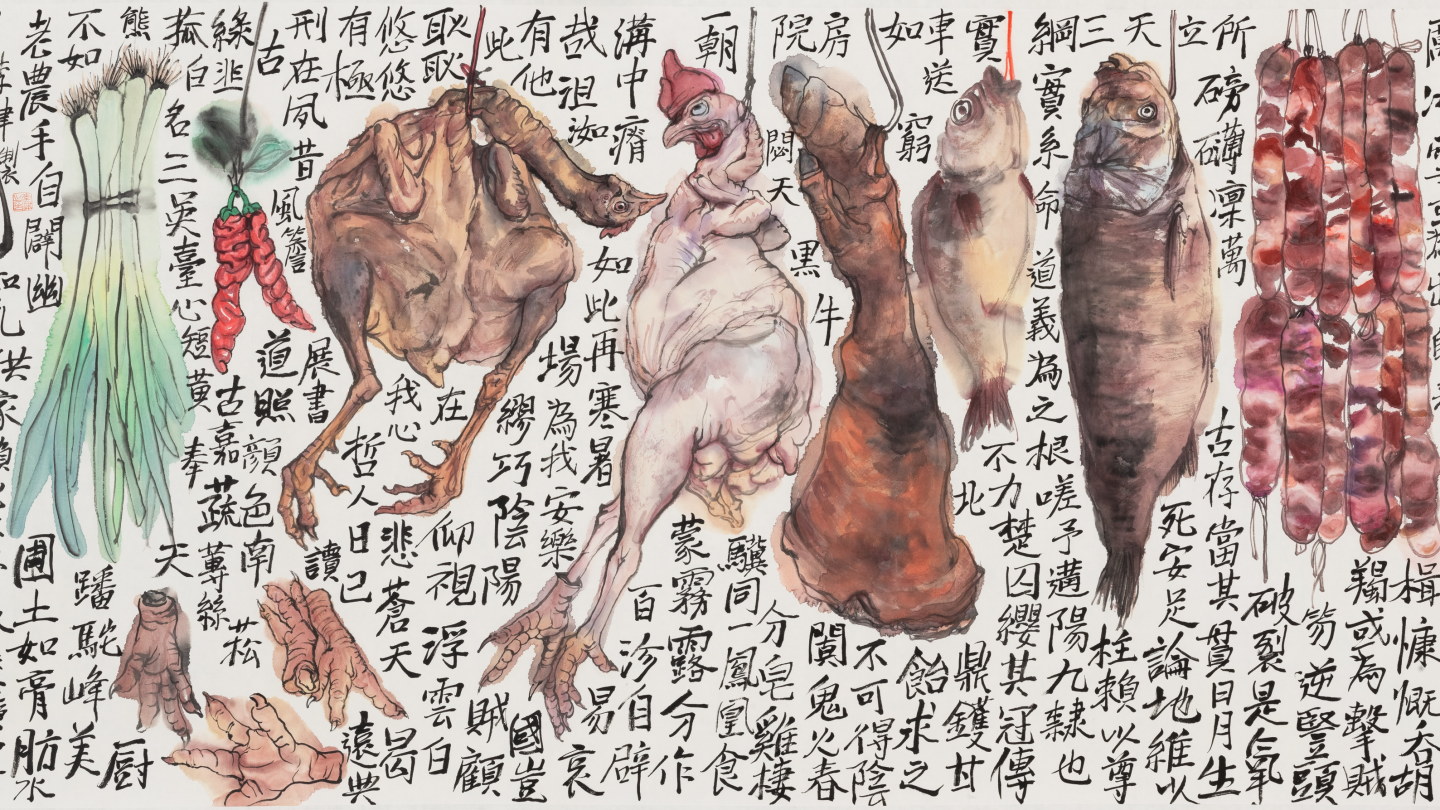 楫慷慨吞胡
羯或為擊賊
笏逆豎頭
破裂是氣
所磅礴凜萬
古存當其貫日月生
死安足論地維以
立
天柱賴以尊
三
綱實系命道義為之根嗟予遘陽九隸也
實不力楚囚纓其冠傳
車送窮北鼎鑊甘
如飴求之
不可得陰
房闃鬼火春
院閟天黑牛
驥同一
分皂雞棲
鳳凰食
一朝蒙霧露分作
溝中瘠如此再寒暑百沴自辟
易哀
哉沮洳場為我安樂國豈
有他繆巧陰陽賊顧
此
耿耿在仰視浮雲白
悠悠我心悲蒼天曷
有極哲人日已遠典
刑在夙昔風簷展書讀
古道照顏色南
綠韭古嘉蔬蓴絲菘
菰白名三英臺心短黃奉天廚
熊蹯駝峰美
不如
老農手自闢幽圃土如膏肪水